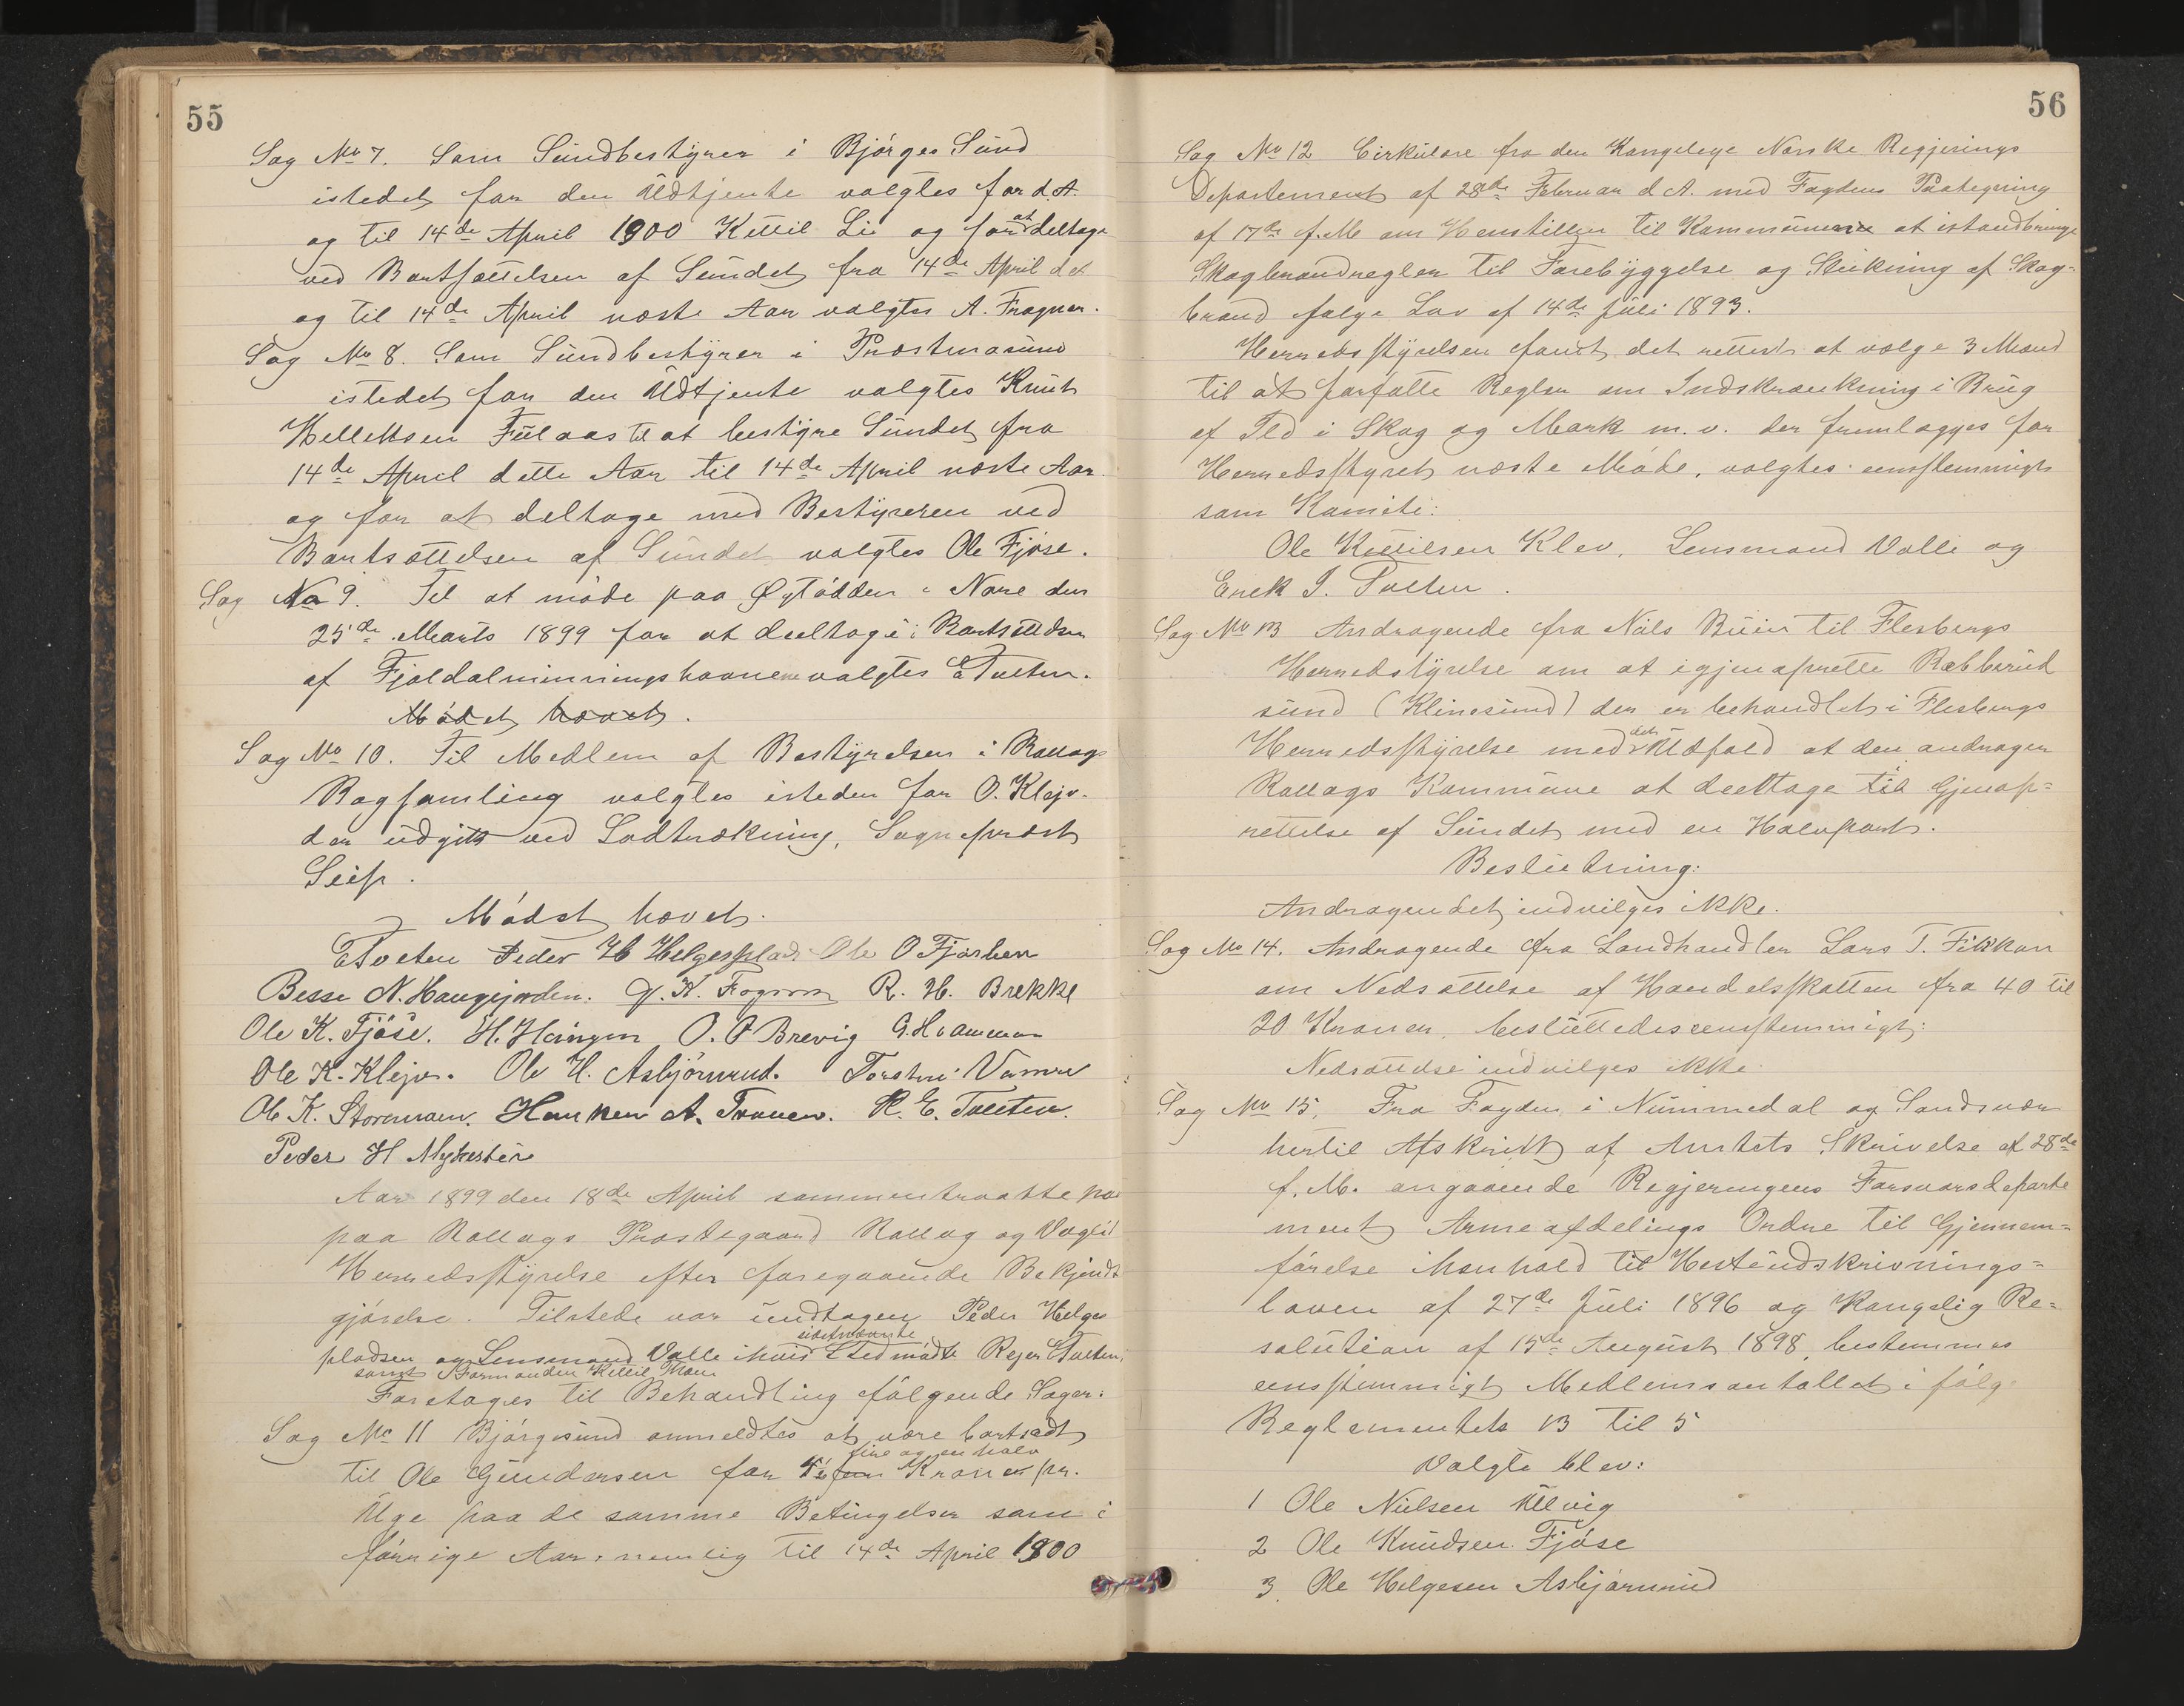 55
Sag No 7. Som Sundbestyrer i Bjørges Sund
istedet for den Udtjente valgtes for d.A.
og til 14de April 1900 Kittil Li og for at deltage
ved Bortsættelsen af Sundet fra 14de April d.A.
og til 14de April næste Aar valgtes A. Fragner.
Sag No 8. Som Sundbestyrer i Præstmosund
istedet for den Udtjente valgtes Knut
Helleksen Fulaas til at bestyre Sundet fra
14de April dette Aar til 14de April næste Aar.
og for at deltage med Bestyreren ved
Bortsættelsen af Sundet valgtes Ole Fjøse.
Sag No 9. Til at møde paa Øytødden i Nore den
25de Marts 1899 for at deeltage i Bortsættelsen
af Fjeldalminningshavnene valgtes E Tveten.
Mødet hævet.
Sag No 10. Til Medlem af Bestyrelsen i Rollag
Bogsamling valgtes isteden for O. Klejv.
der udgik ved Lodtrækning, Sognepræst
Seip.
Mødet hævet.
E Tveten Peder H Helgesplads Ole O Fjøsben
Besse N. Haugejorden. R. H. Brekke
Ole K. Fjøse. O. O Brevig G. Hvamman
Ole K. Klejv. Ole H. Asbjørnrud. Torsten
Ole K. A. Traaen. K. E. Tveten.
Peder H Mykstu
Aar 1899 den 18de April sammentraatte
paa Rollags Præstegaard Rollag og Veglid
Herredsstyrelse efter foregaaende Bekjendt
gjørelse. Tilstede var undtagen Peder Helges
pladsen og Lensmand Valle i hvis sidstnævnte Sted mødte Rejer E Tveten.
samt Formanden Kittil
Foretages til Behandling følgende Sager:
Sag No 11 Bjørgesund anmeldtes at være bortsadt
til Ole Gundersen for fire og en halv Kroner pr.
Uge paa de samme Betingelser som i
førrige Aar, nemlig til 14de April 1900
56
Sag No 12 Cirkulære fra den Kongelige Norske Regjerings
Departement af 28de Februar d A. med Fogdens Paategning
af 17de f.M om Henstillen til Kommunerne at istandbringe
Skogbrandregler til Forebyggelse og Slukning af Skog-
brand følge Lov af 14de Juli 1893.
Herredsstyrelsen fandt det rettest at vælge 3 Mænd
til at forfatte Regler om Indskrænkning i Brug
af Ild i Skog og Mark m.v. der fremlægges for
Herredsstyret næste Møde, valgtes eensstemmigt
som Komite:
Ole Kittilsen Klev, Lensmand Valle og
Erick J. Tveten.
Sag No 13 Andragende fra Niels Buin til Flesbergs
Herredstyrelse om at igjenoprette Robberud
sund (Klinesund) der er behandlet i Flesbergs
Herredsstyrelse med det Udfald at den andrager
Rollags Kommune at deeltage til Gjenop-
rettelse af Sundet med en Halvpart.
Beslutning:
Andragendet indvilges ikke.
Sag No 14. Andragende fra Landhandler Lars T. Fikkan
om Nedsættelse af Handelsskatten fra 40 til
20 Kroner, besluttedes eensstemmigt:
Nedsættelse indvilges ikke.
Sag No 15. Fra Fogden i Nummedal og Sandsvær
hertil Afskrift af Amtets Skrivelse af 28de
f. M. angaaende Regjeringens Forsvarsdeparte
ment Armeafdelings Ordre til Gjennem-
førelse i Henhold til Hesteudskrivnings-
loven af 27de Juli 1896 og Kongelig Re-
solution af 15de August 1898, bestemmes
eensstemmigt Medlemsantallet i følge
Reglementets 13 til 5
Valgte blev:
1 Ole Nielsen Ulvig
2 Ole Knudsen Fjøse
3. Ole Helgesen Asbjørnrud